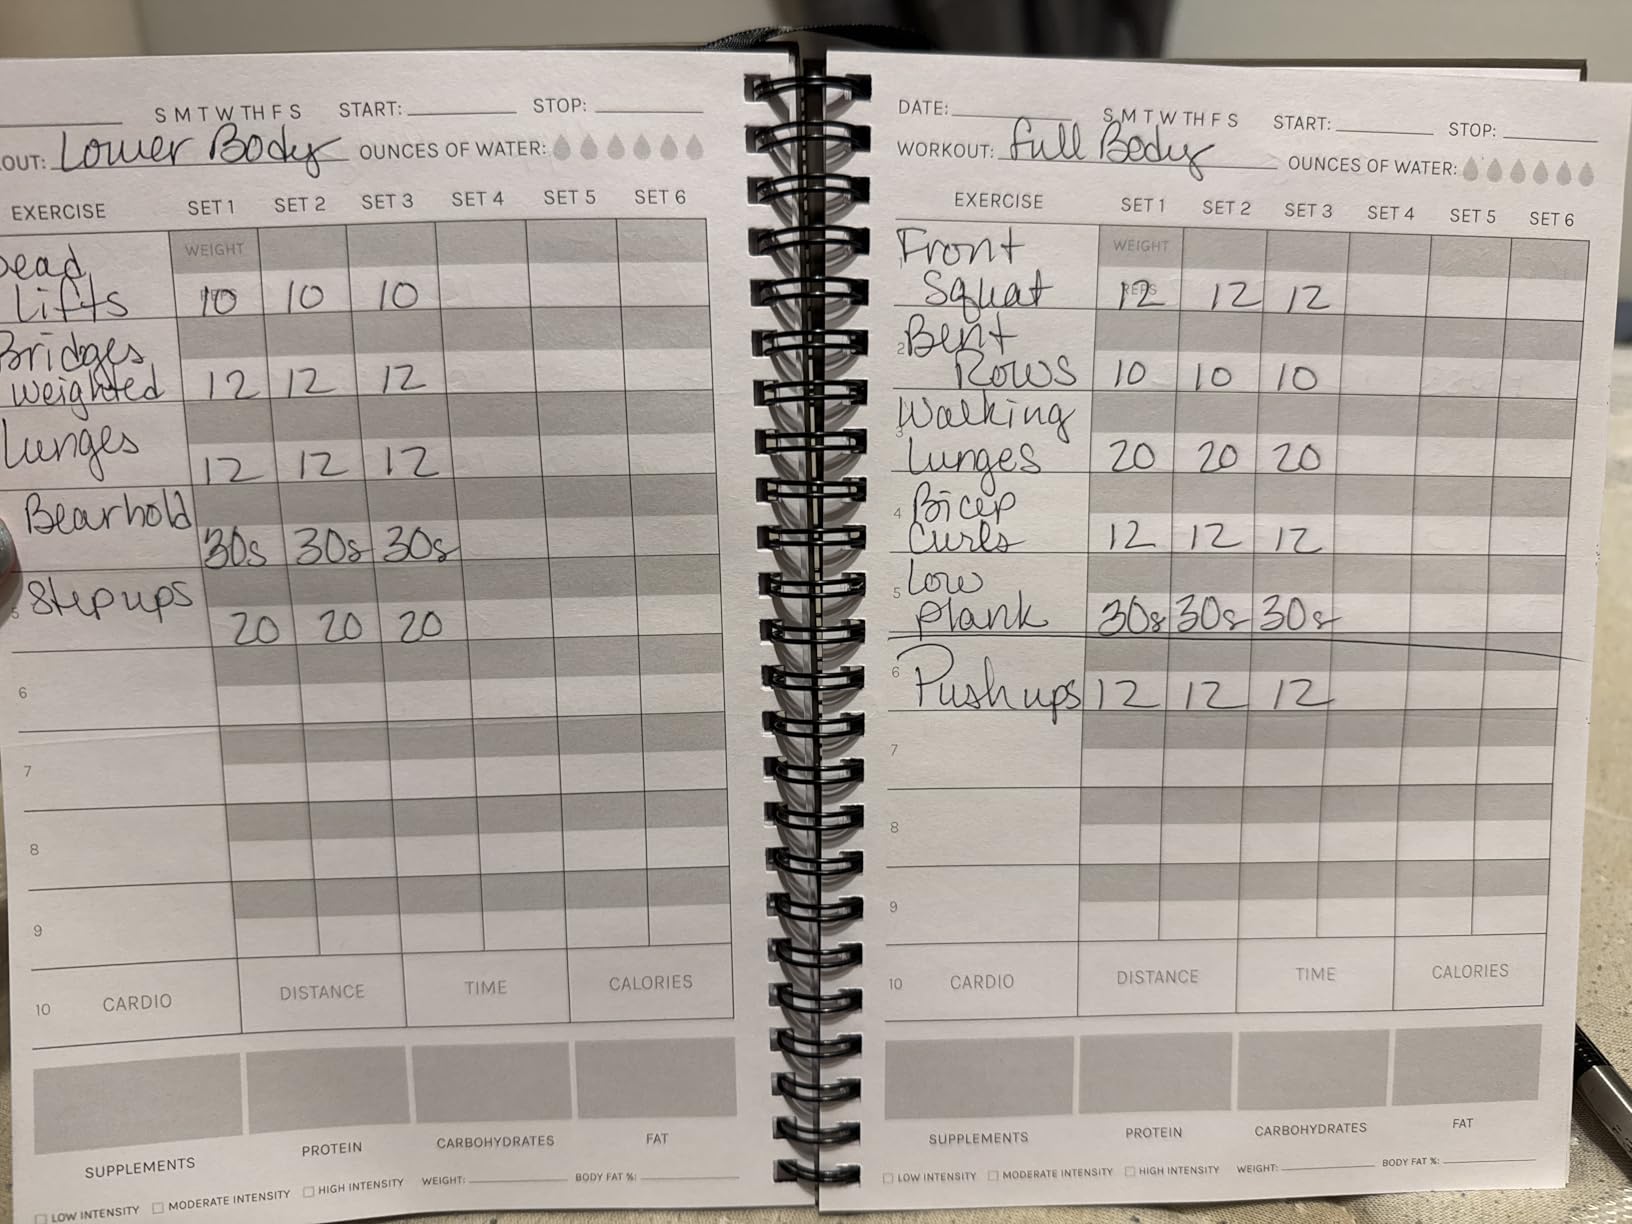 S M T W TH F S START: STOP:
OUT: Lower Body OUNCES OF WATER:
EXERCISE SET 1 SET 2 SET 3 SET 4 SET 5 SET 6
WEIGHT
Dead
Lifts 10 10 10
Bridges
weighted 12 12 12
Lunges
12 12 12
Bearhold
30s 30s 30s
5 Step ups
20 20 20
6
7
8
9
10 CARDIO DISTANCE TIME CALORIES
SUPPLEMENTS PROTEIN CARBOHYDRATES FAT
LOW INTENSITY MODERATE INTENSITY HIGH INTENSITY WEIGHT: BODY FAT %:
DATE: S M T W TH F S START: STOP:
WORKOUT: Full Body OUNCES OF WATER:
EXERCISE SET 1 SET 2 SET 3 SET 4 SET 5 SET 6
Front WEIGHT
Squat REPS 12 12 12
2 Bent
Rows 10 10 10
3 Walking
Lunges 20 20 20
4 Bicep
Curls 12 12 12
5 Low
plank 30s 30s 30s
6 Push ups 12 12 12
7
8
9
10 CARDIO DISTANCE TIME CALORIES
SUPPLEMENTS PROTEIN CARBOHYDRATES FAT
LOW INTENSITY MODERATE INTENSITY HIGH INTENSITY WEIGHT: BODY FAT %: